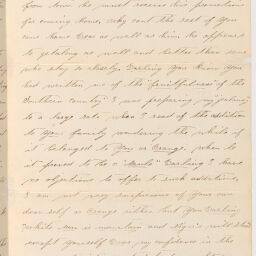 from home he must receive two promotions
for coming home, why cant the rest of you
come home Dear as well as him he appears
to getaling as well and better than some
who stay so closely. Darling you know you
had written me of the fruitfulness of the
Southern country I was preparing my
to a large rate when I read of the addition
to your family wondering the while if
it belonged to you or George, when lo
it proved to be a "Mule" Darling I have
no objections to offer to such additions.
I am not very suspicious of your own
dear self or George either but you Darling
while men is and will
except yourself Dear, my confidence in the